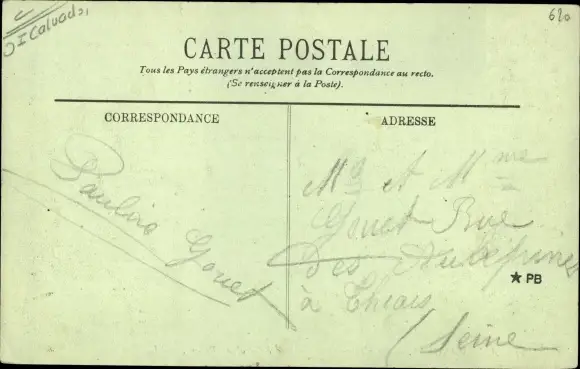 Calvados
620
CARTE POSTALE
Tous les Pays étrangers n'acceptent pas la Correspondance au recto.
(Se renseigner à la Poste).
CORRESPONDANCE
ADRESSE
Gouet
Mr et Mme
Gouet Rue
des Aubepines
★ PB
à Thiais
(Seine